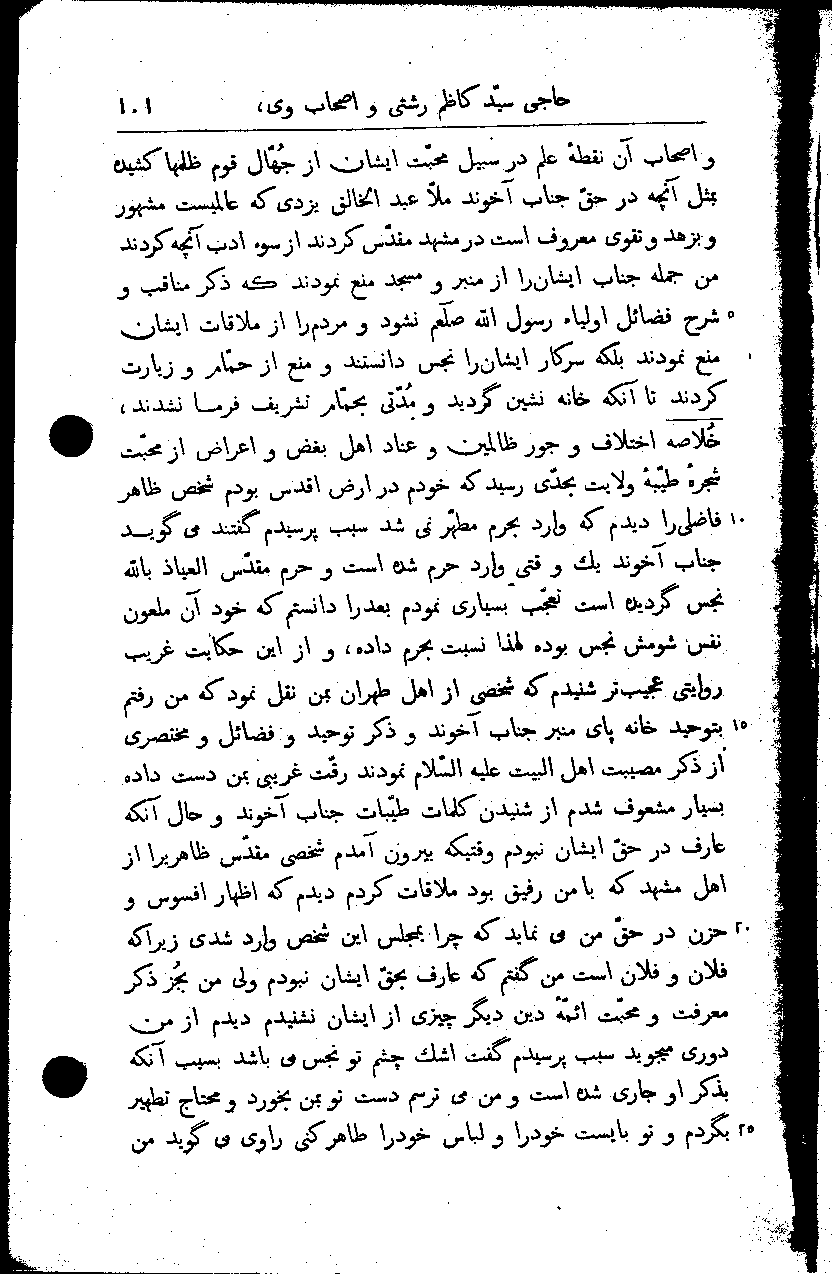 حاجی سیّد کاظم رشتی و اصحاب وی، ۱۰۱
و اصحاب آن نقطهٔ علم در سبیل محبّت ایشان از جُهّال قوم ظلمها کشیده
بمثل آنچه در حقّ جناب آخوند ملّا عبد الخالق یزدی که عالمیست مشهور
و بزهد و تقوی معروف است در مشهد مقدّس کردند از سوء ادب آنچه کردند
من جمله جناب ایشان‌را از منبر و مسجد منع نمودند که ذکر مناقب و
۵ شرح فضائل اولیاء رسول الله صلّعم نشود و مردم‌را از ملاقات ایشان
منع نمودند بلکه سرکار ایشان‌را نجس دانستند و منع از حمّام و زیارت
کردند تا آنکه خانه نشین گردید و مُدّتی بحمّام تشریف فرما نشدند،
خُلاصه اختلاف و جور ظالمین و عناد اهل بغض و اعراض از محبّت
شجرهٔ طیّبهٔ ولایت بحدّی رسید که خودم در ارض اقدس بودم شخص ظاهر
۱۰ فاضلی‌را دیدم که وارد بحرم مطهّر نی شد سبب پرسیدم گفتند می گوید
جناب آخوند یك و قتی وارد حرم شده است و حرم مقدّس العیاذ بالله
نجس گردیده است تعجّب بسیاری نمودم بعدرا دانستم که خود آن ملعون
نفس شومش نجس بوده لهذا نسبت بحرم داده، و از این حکایت غریب
روایتی عجیب‌تر شنیدم که شخصی از اهل طهران بمن نقل نمود که من رفتم
۱۵ بتوحید خانه پای منبر جناب آخوند و ذکر توحید و فضائل و مختصری
از ذکر مصیبت اهل البیت علیه السّلام نمودند رقّت غریبی بمن دست داده
بسیار مشعوف شدم از شنیدن کلمات طیّبات جناب آخوند و حال آنکه
عارف در حقّ ایشان نبودم وقتیکه بیرون آمدم شخصی مقدّس ظاهریرا از
اهل مشهد که با من رفیق بود ملاقات کردم دیدم که اظهار افسوس و
۲۰ حزن در حقّ من می نماید که چرا بمجلس این شخص وارد شدی زیراکه
فلان و فلان است من گفتم که عارف بحقّ ایشان نبودم ولی من بجُز ذکر
معرفت و محبّت ائمّهٔ دین دیگر چیزی از ایشان نشنیدم دیدم از من
دوری میجوید سبب پرسیدم گفت اشك چشم تو نجس می باشد بسبب آنکه
بذکر او جاری شده است و من می ترسم دست تو بمن بخورد و محتاج تطهیر
۲۵ بگردم و تو بایست خودرا و لباس خودرا طاهر کنی راوی می گوید من